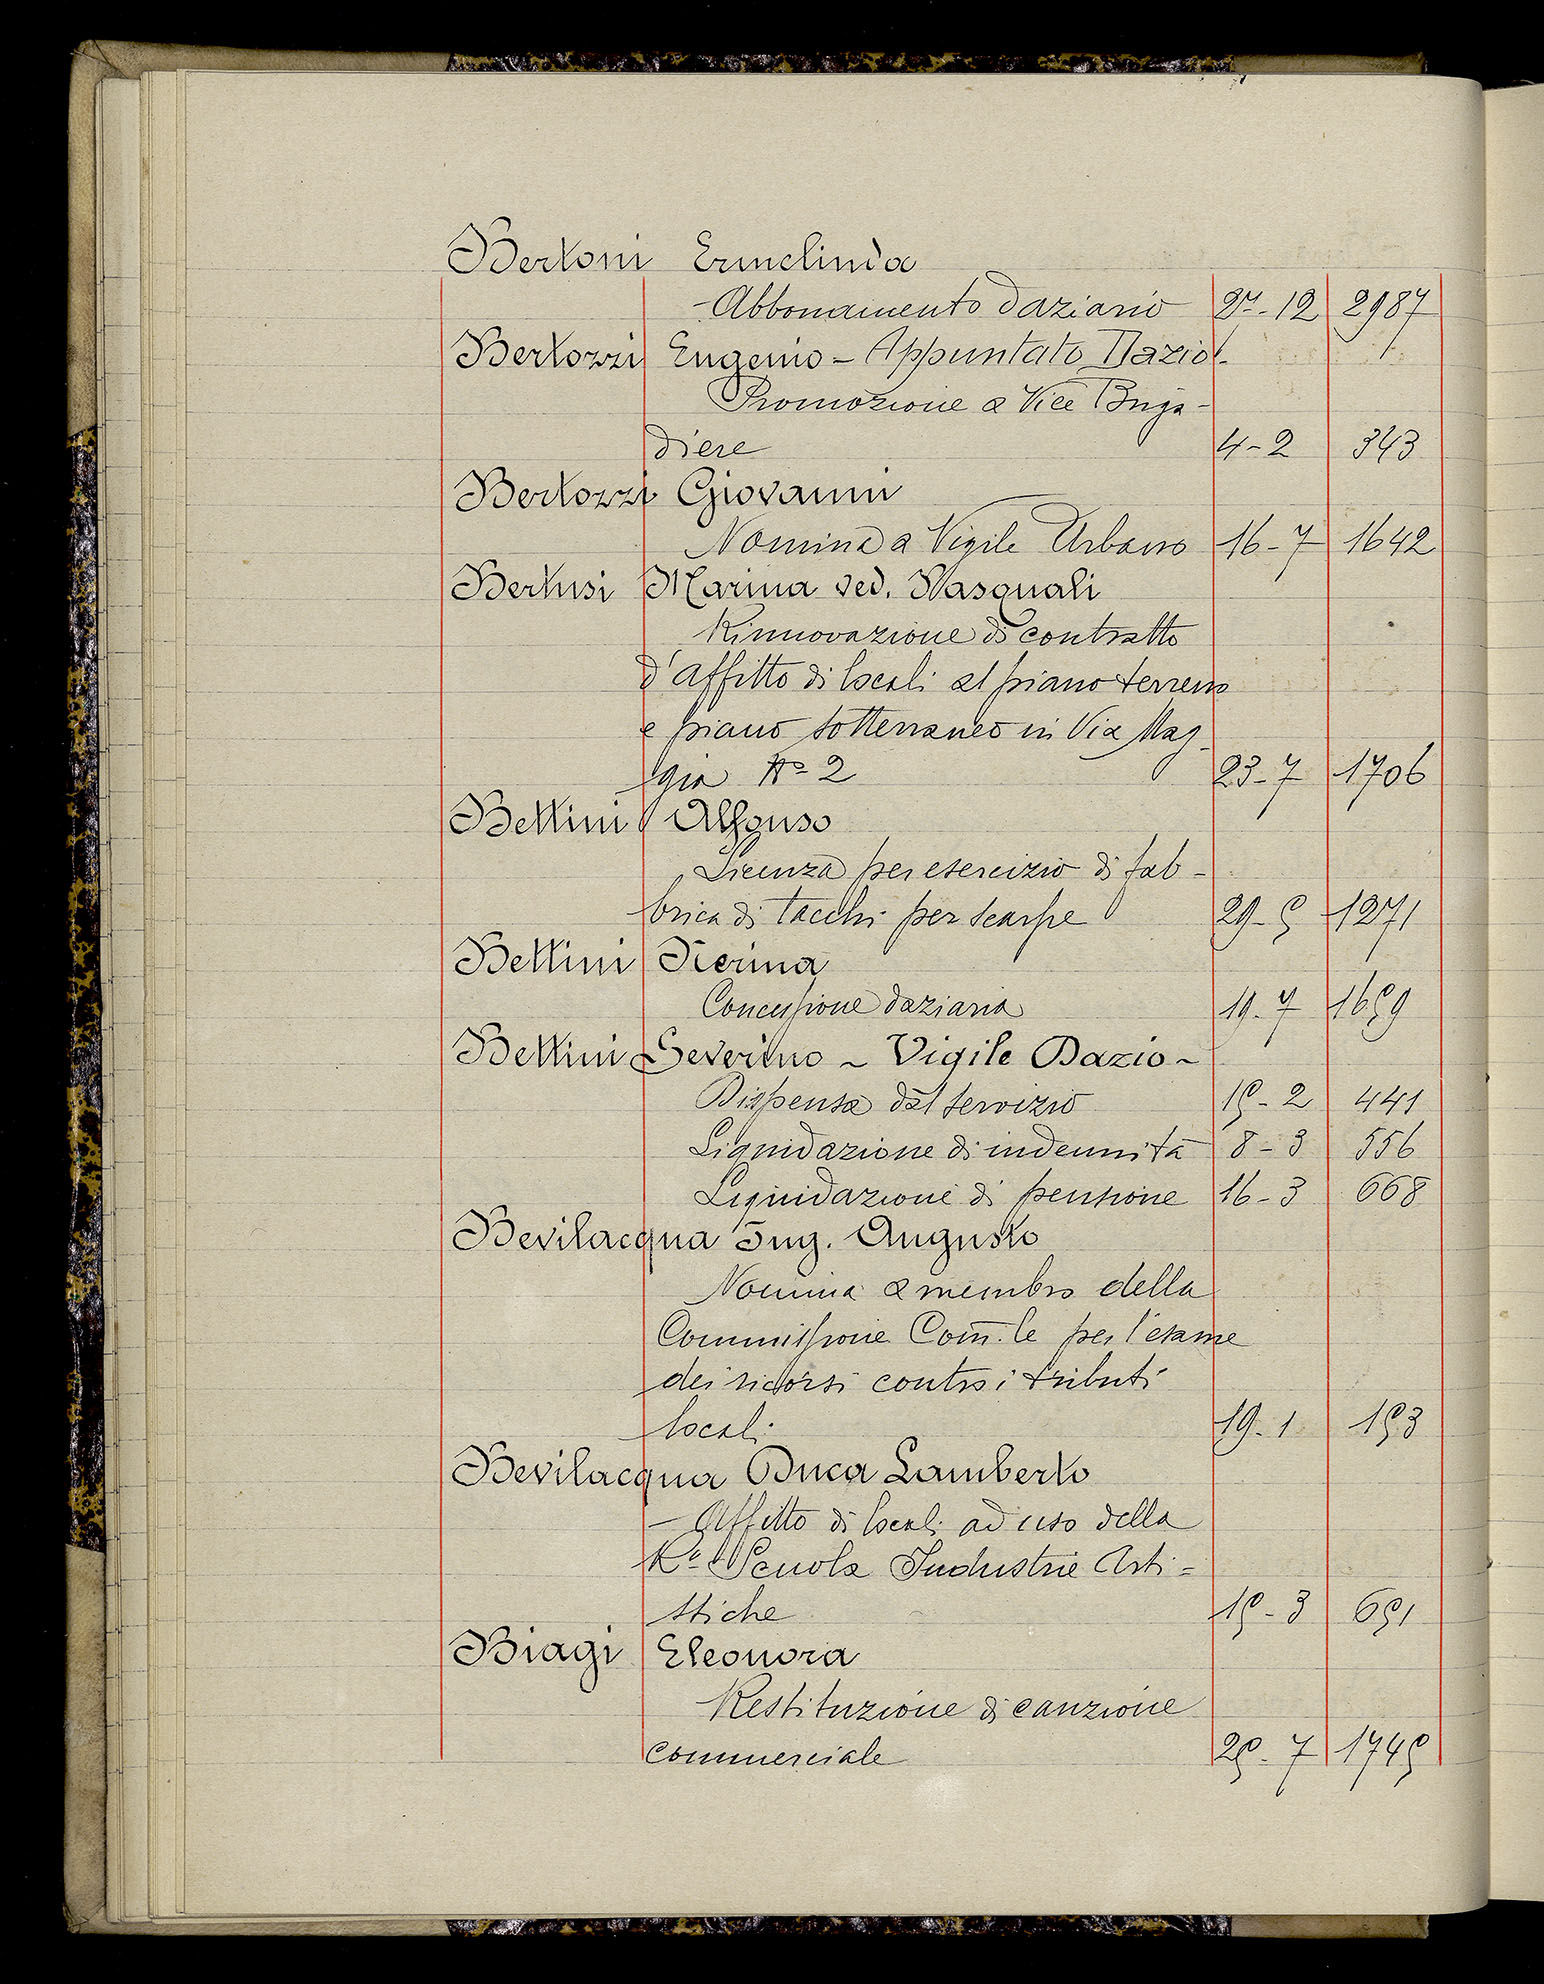 Bertoni Ermelinda
Abbonamento daziario 27-12 2987
Bertozzi Eugenio - Appuntato Dazio -
Promozione a Vice Briga-
diere 4-2 343
Bertozzi Giovanni
Nomina a Vigile Urbano 16-7 1642
Bertusi Marina ved. Pasquali
Rinnovazione di contratto
d'affitto di locali al piano terreno
e piano sotterraneo in Via Mag-
gia N° 2 23-7 1706
Bettini Alfonso
Licenza per esercizio di fab-
brica di tacchi per scarpe 29-5 1271
Bettini Pierina
Concessione daziaria 19-7 1659
Bettini Severino - Vigile Dazio -
Dispensa dal servizio 15-2 441
Liquidazione di indennità 8-3 556
Liquidazione di pensione 16-3 668
Bevilacqua Ing. Augusto
Nomina a membro della
Commissione Com.le per l'esame
dei ricorsi contro i tributi
locali 19-1 153
Bevilacqua Duca Lamberto
- Affitto di locali ad uso della
Ra Scuola Industrie Arti=
stiche 15-3 651
Biagi Eleonora
Restituzione di cauzione
commerciale 25-7 1745